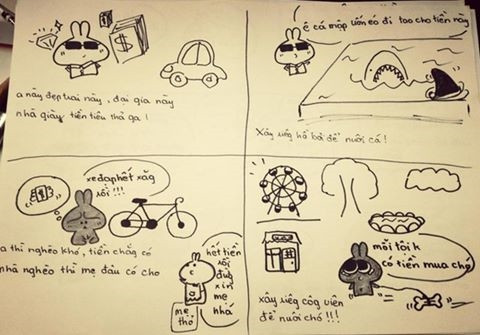 a này đẹp trai này, đại gia này
nhà giàu tiền tiêu thả ga!
ê cá mập uốn éo đi tao cho tiền này
Xây riêng hồ bơi để nuôi cá!
xe đạp hết xăg
rồi!!!
a thì nghèo khó, tiền chẳng có
nhà nghèo thì mẹ đâu có cho
hết tiền
rồi
đừg
xin
mẹ
nhá
mẹ
thỏ
mỗi tôi k
có tiền mua chó
xây riêg côg viên
để nuôi chó!!!